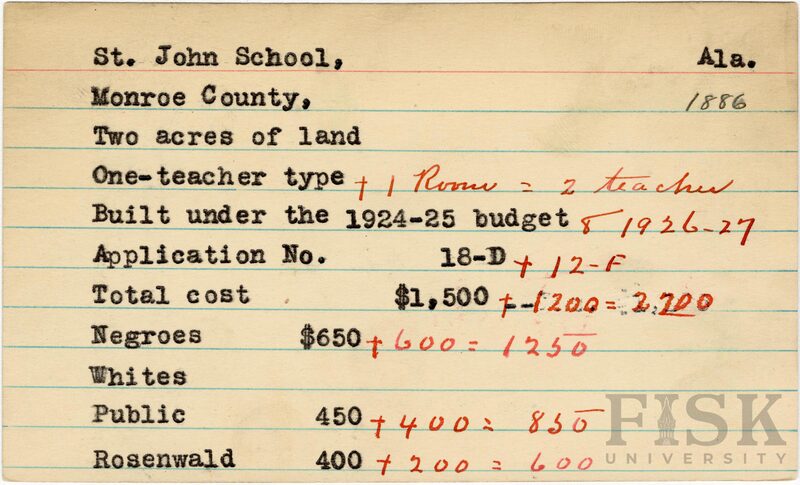 St. John School, Ala.
Monroe County, 1886
Two acres of land
One-teacher type + 1 Room = 2 teacher
Built under the 1924-25 budget & 1926-27
Application No. 18-D + 12-F
Total cost $1,500 + 1200 = 2700
Negroes $650 + 600 = 1250
Whites
Public 450 + 400 = 850
Rosenwald 400 + 200 = 600
FISK
UNIVERSITY